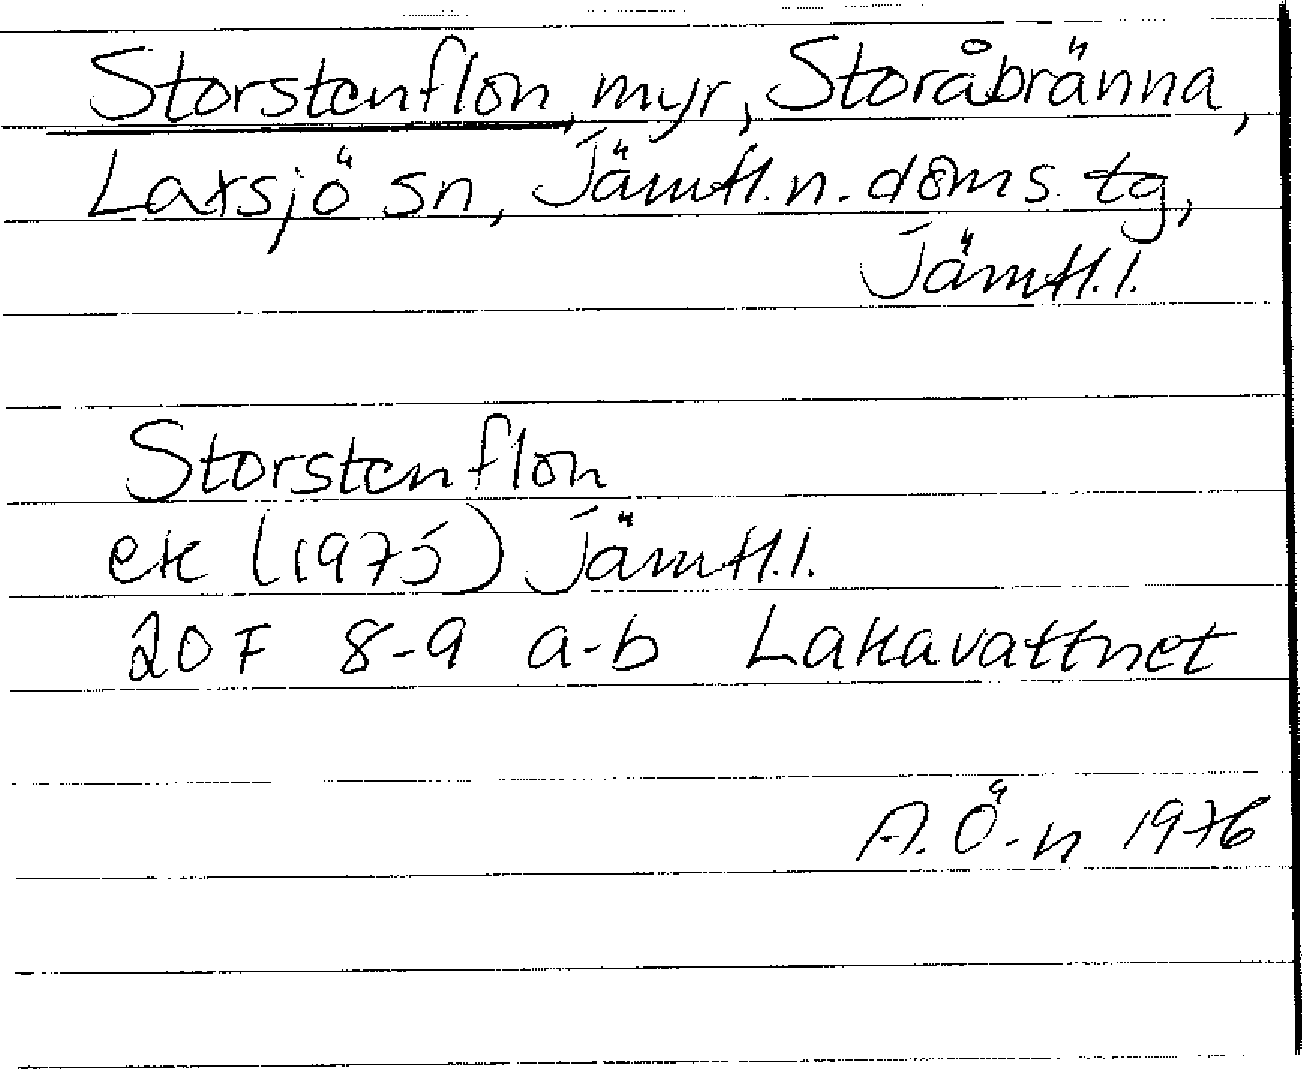 Storstenflon, myr, Storåbränna,
Laxsjö sn, Jämtl.n.doms.tg,
Jämtl.l.
Storstenflon
ek (1975) Jämtl.l.
20F 8-9 a-b Lakavattnet
A.Ö-n 1976